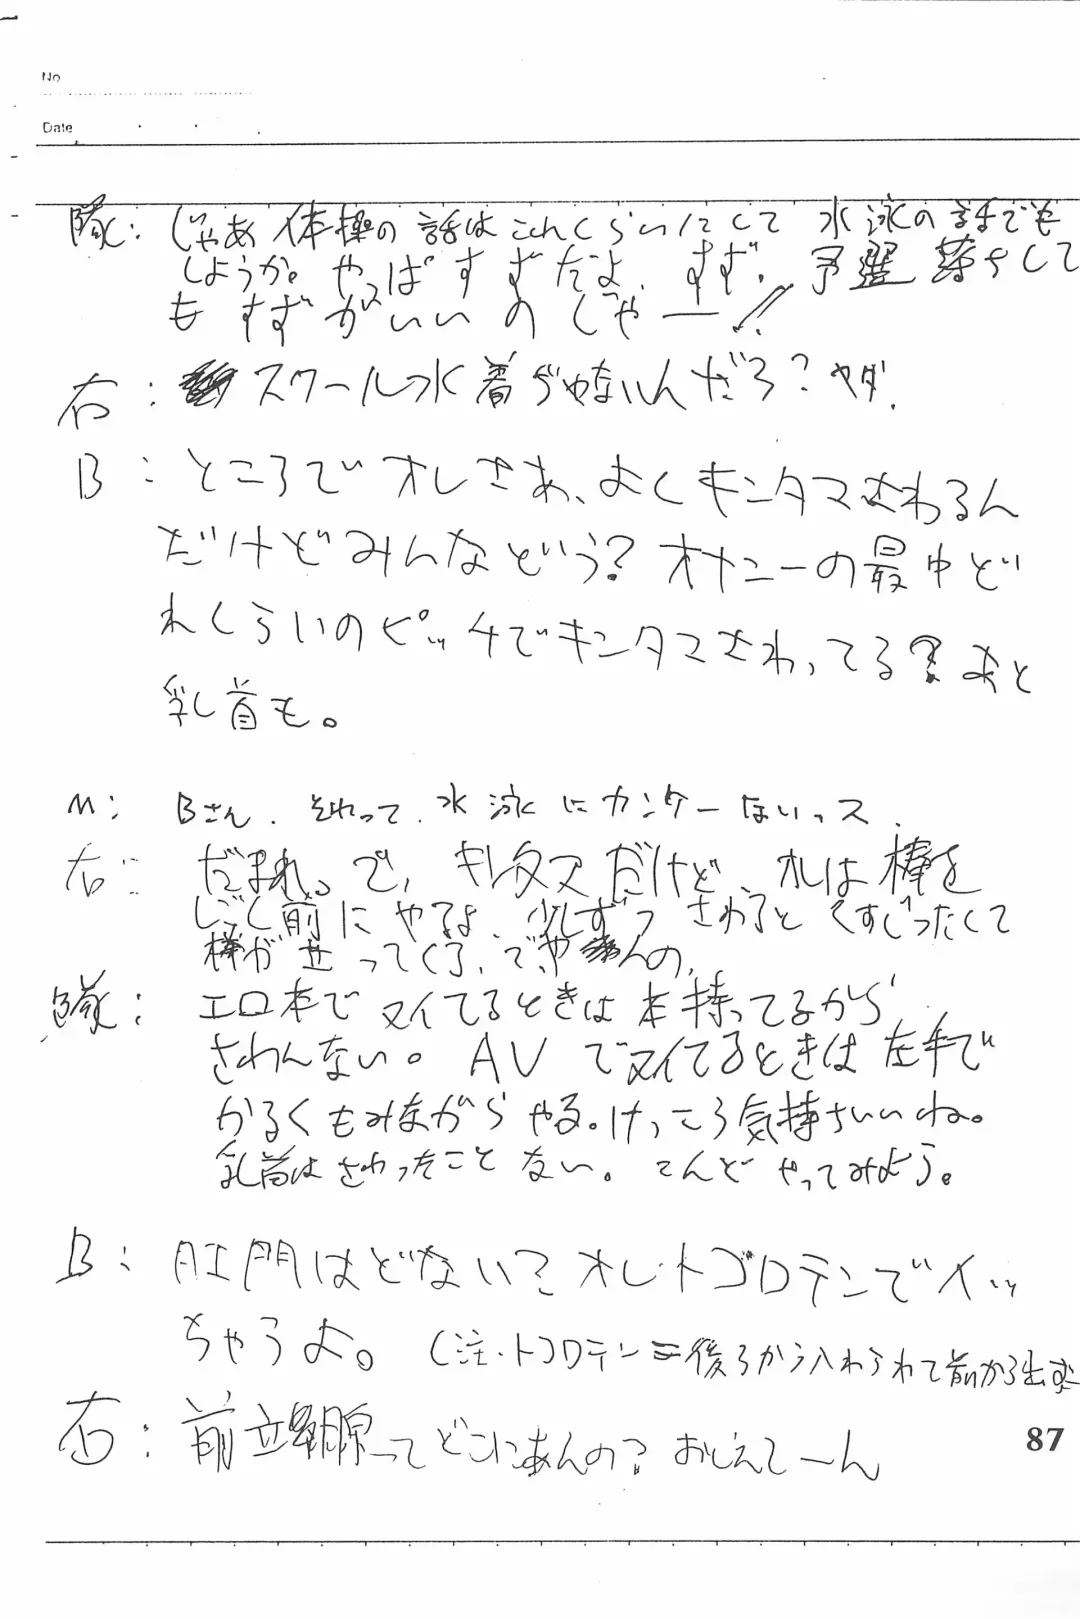 No
Date
隊: じゃあ体操の話はこれくらいにして 水泳の話でも
しようか。やっぱすずだよ、すず。予選落ちして
もすずがいいのじゃー!!
右: スクール水着ぢゃないんだろ?ヤダ.
B: ところでオレさあ、よくキンタマさわるん
だけどみんなどう?オナニーの最中ど
れくらいのピッチでキンタマさわってる?あと
乳首も。
M: Bさん、それって、水泳にカンケーないっス.
右: だまれ。で、キンタマだけど、オレは棒を
しごく前にやるよ、少しずつさわるとくすぐったくて
棒が立ってくる、で、やんの、
隊: エロ本でヌイてるときは本持ってるから
さわんない。AVでヌイてるときは左手で
かるくもみながらやる。けっこう気持ちいいね。
乳首はさわったことない。こんどやってみよう。
B: 肛門はどない?オレ、トコロテンでイッ
ちゃうよ。(注・トコロテン=後ろから入れられて前から出す
右: 前立腺ってどこにあんの?おしえてーん
87